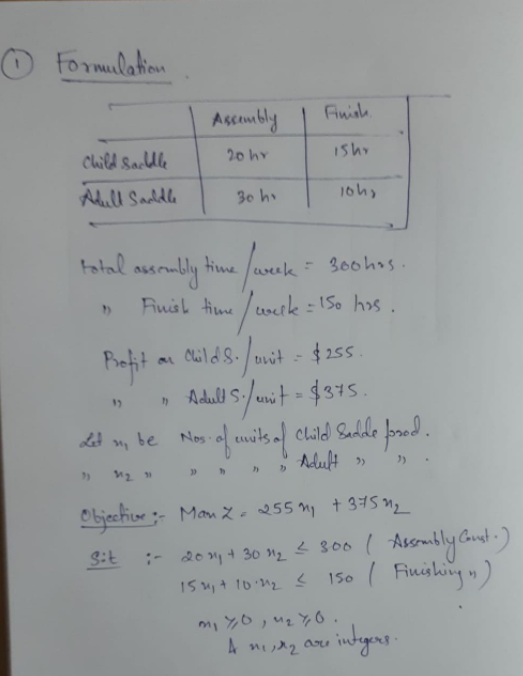 ① Formulation.
Assembly Finish.
Child Saddle 20 hr 15 hr
Adult Saddle 30 hr 10 hr
total assembly time/week = 300 hrs.
" Finish time/week = 150 hrs.
Profit on Child S./unit = $255.
" " Adult S./unit = $375.
Let x₁ be Nos. of units of Child Saddle prod.
" x₂ " " " " " Adult " ".
Objective :- Max Z = 255 x₁ + 375 x₂
S.t :- 20x₁ + 30 x₂ ≤ 300 ( Assembly Const.)
15x₁ + 10·x₂ ≤ 150 ( Finishing " )
x₁ ≥ 0, x₂ ≥ 0.
& x₁, x₂ are integers.